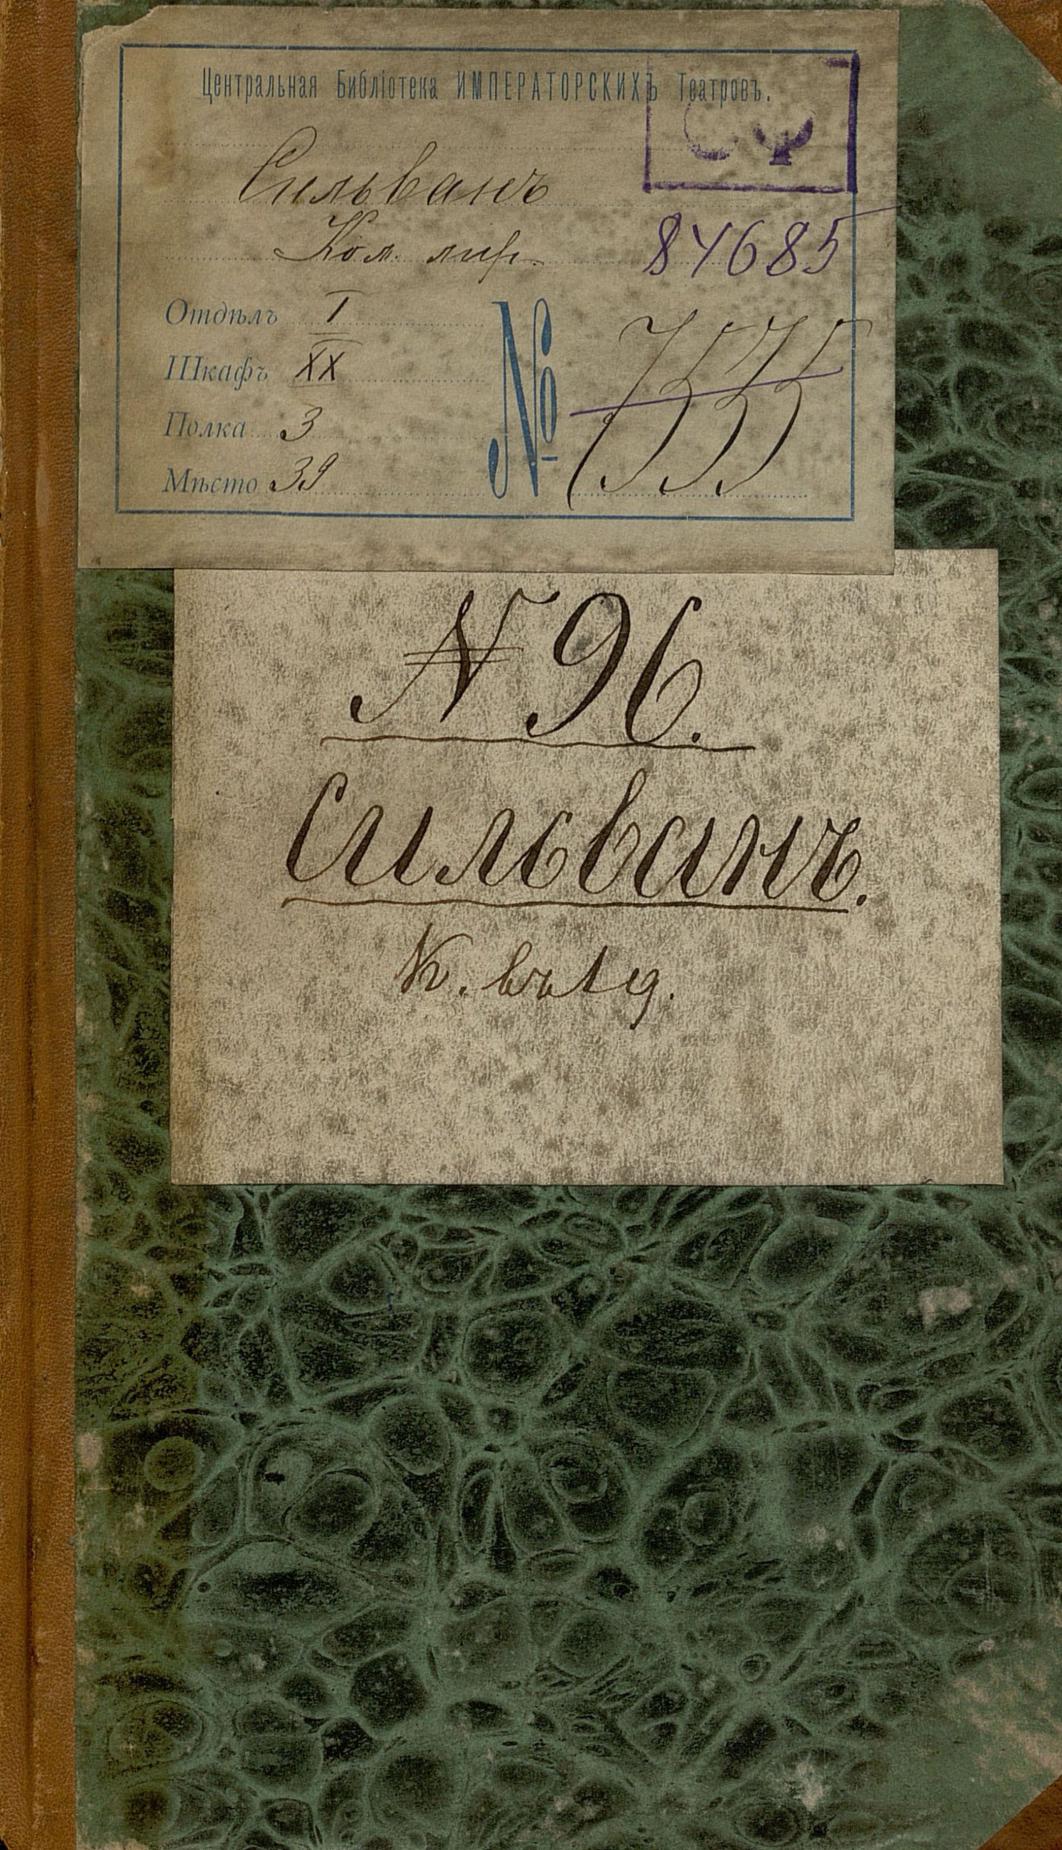 Центральная Библіотека ИМПЕРАТОРСКИХЪ Театровъ.
СФ
Сильванъ
Ком. лир.
84685
Отдѣлъ I
Шкафъ XX
Полка 3
Мѣсто 39
№ 7535
N 96.
Сильванъ.
К. въ 1 д.